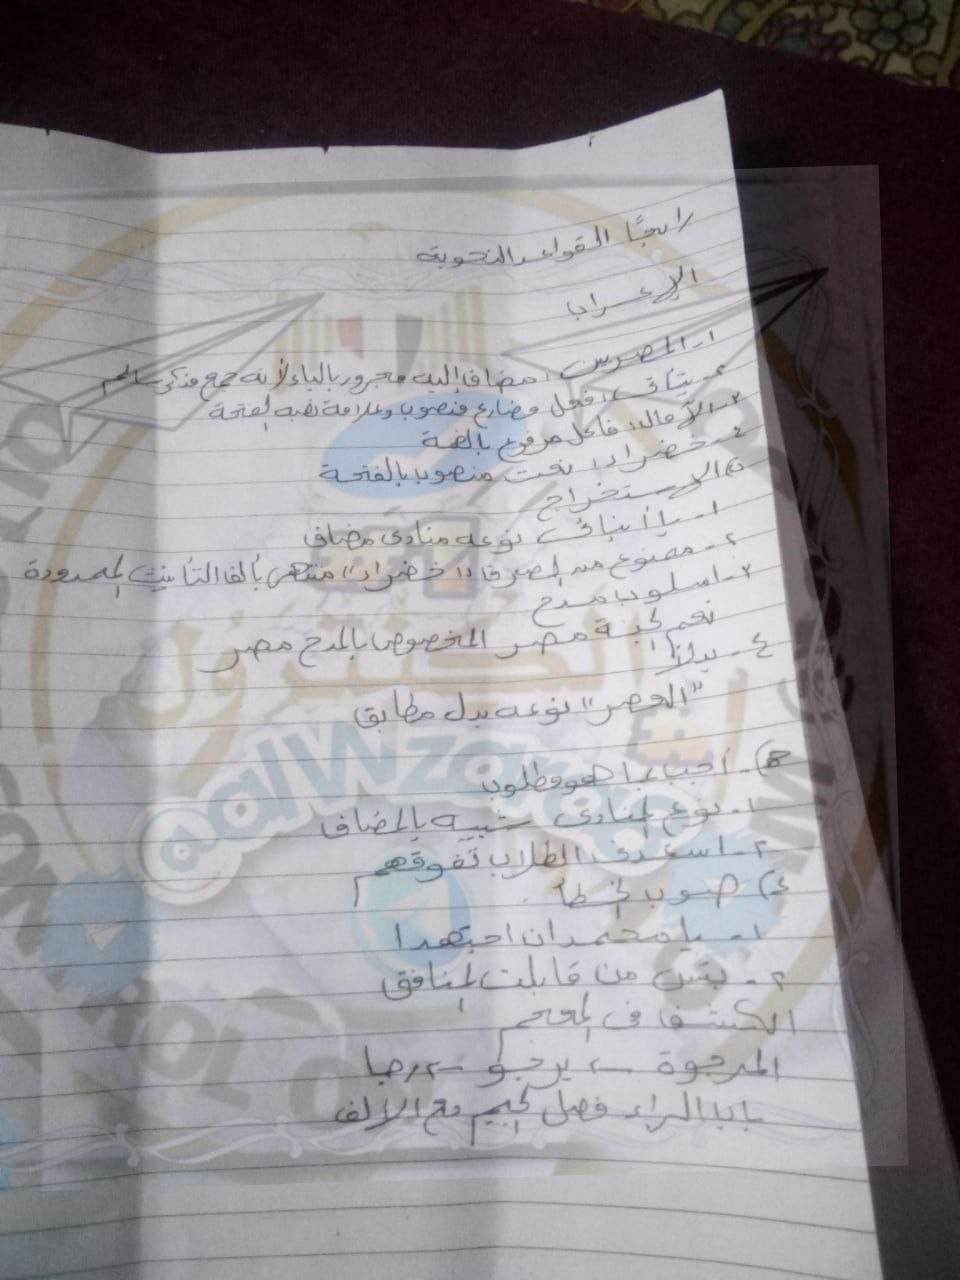 رابعًا القواعد النحوية
الإعراب
١- المصريين: مضاف إليه مجرور بالياء لأنه جمع مذكر سالم
٢- يتأتى: فعل مضارع منصوب وعلامة نصبه الفتحة
٣- الآمال: فاعل مرفوع بالضمة
٤- خضراء: نعت منصوب بالفتحة
الاستخراج
١- يا أبنائى نوعه منادى مضاف
٢- ممنوع من الصرف "خضراء" منتهى بألف التأنيث الممدودة
٣- اسلوب مدح
نعم الجنة مصر المخصوص بالمدح مصر
٤- بدلًا
"العصر" نوعه بدل مطابق
ج)- أجب بما هو مطلوب
١- نوع المنادى شبيه بالمضاف
٢- اسعدنى الطلاب تفوقهم
د) صوب الخطأ
١- يا محمدان اجتهدا
٢- بئس من قابلت المنافق
الكشف فى المعجم
المرجوة ← يرجو ← رجا
باب الراء فصل الجيم مع الألف
@alWzarap
الكنترول